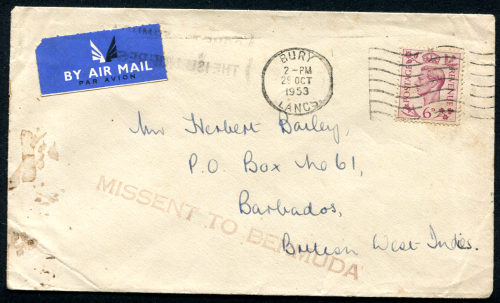 BY AIR MAIL
PAR AVION
BURY
2-PM
29 OCT
1953
LANCS.
POSTAGE
REVENUE
6D
Mr Herbert Bailey,
P.O. Box No 61,
Barbados,
British West Indies.
MISSENT TO BERMUDA